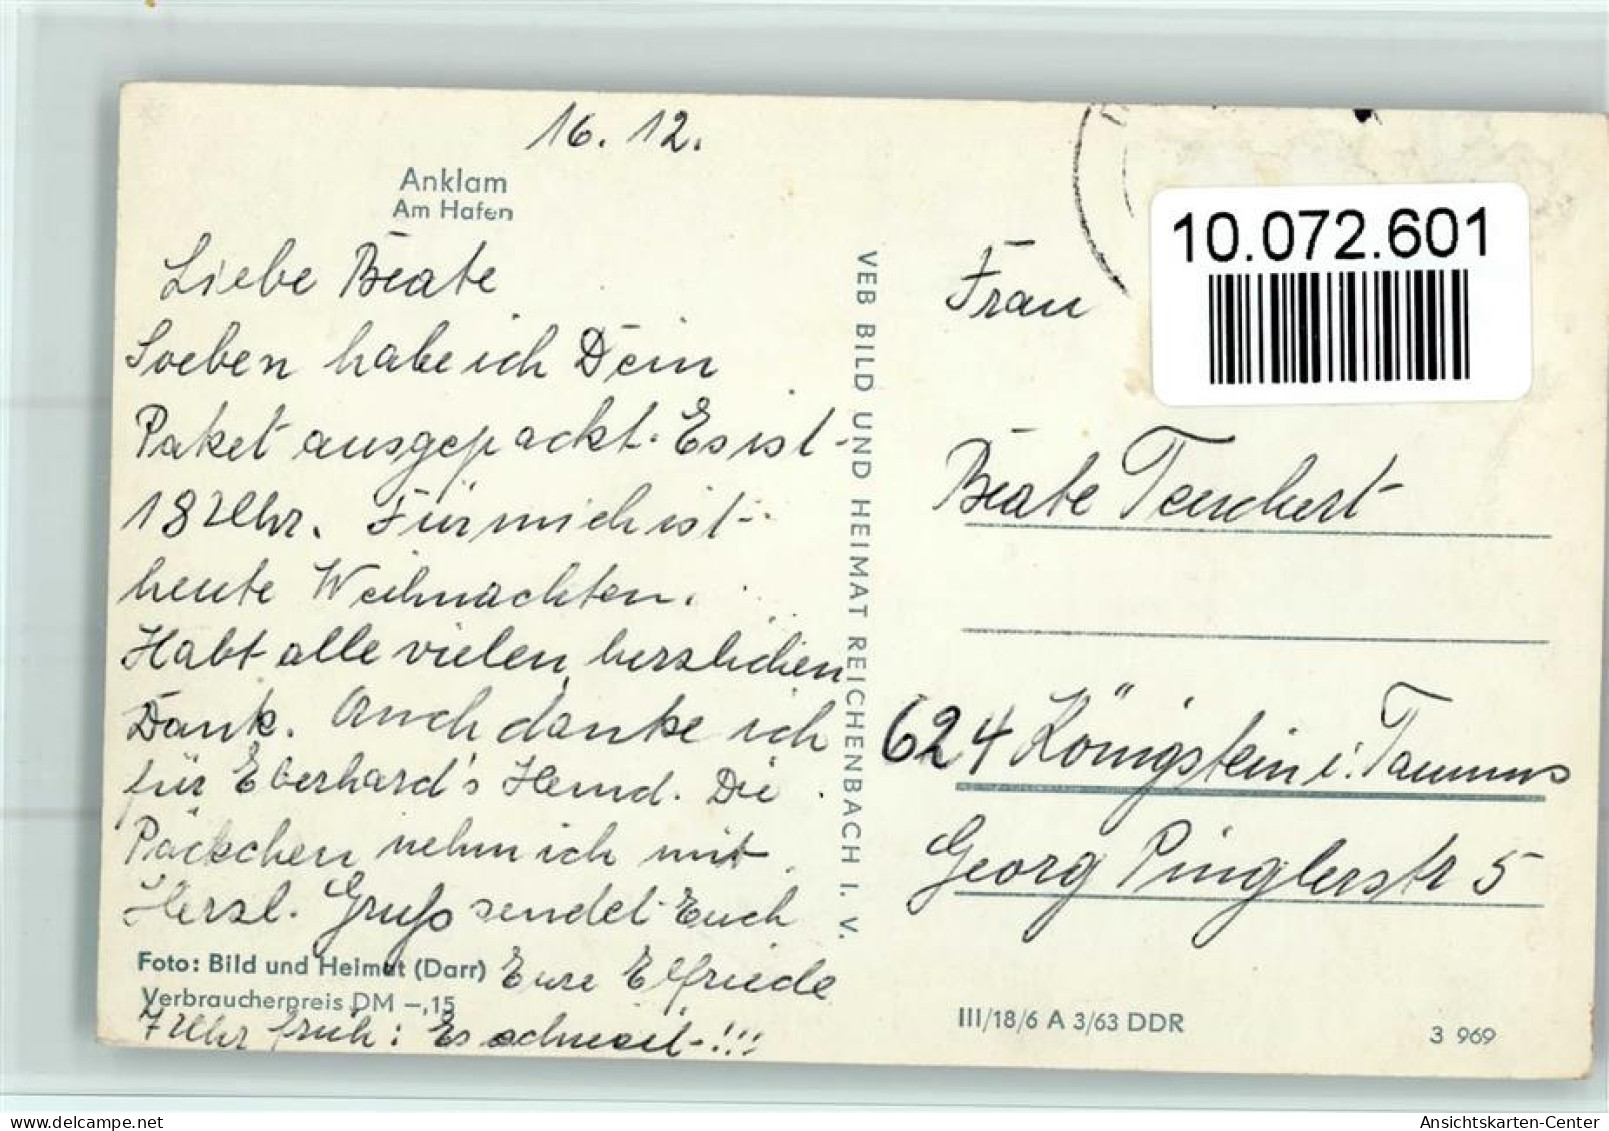 16. 12.
Anklam
Am Hafen
Liebe Beate
Soeben habe ich Dein
Paket ausgepackt. Es ist
18 Uhr. Für mich ist
heute Weihnachten.
Habt alle vielen herzlichen
Dank. Auch danke ich
für Eberhard's Hemd. Die
Päckchen nehm ich mit
Herzl. Gruß sendet Euch
Foto: Bild und Heimat (Darr) Eure Elfriede
Verbraucherpreis DM –,15
7 Uhr früh: Es schneit!!!
VEB BILD UND HEIMAT REICHENBACH I. V.
10.072.601
Frau
Beate Teuchert
624 Königstein i. Taunus
Georg Pinglerstr 5
III/18/6 A 3/63 DDR
3 969
Ansichtskarten-Center